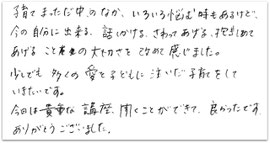 子育てまっただ中のなか、いろいろ悩む時もあるけど、
今の自分に出来る、話しかける、さわってあげる、抱きしめて
あげること本来の大切さを改めて感じました。
少しでも多くの愛を子どもに注いだ子育てをして
いきたいです。
今日は貴重な講座、聞くことができて、良かったです。
ありがとうございました。